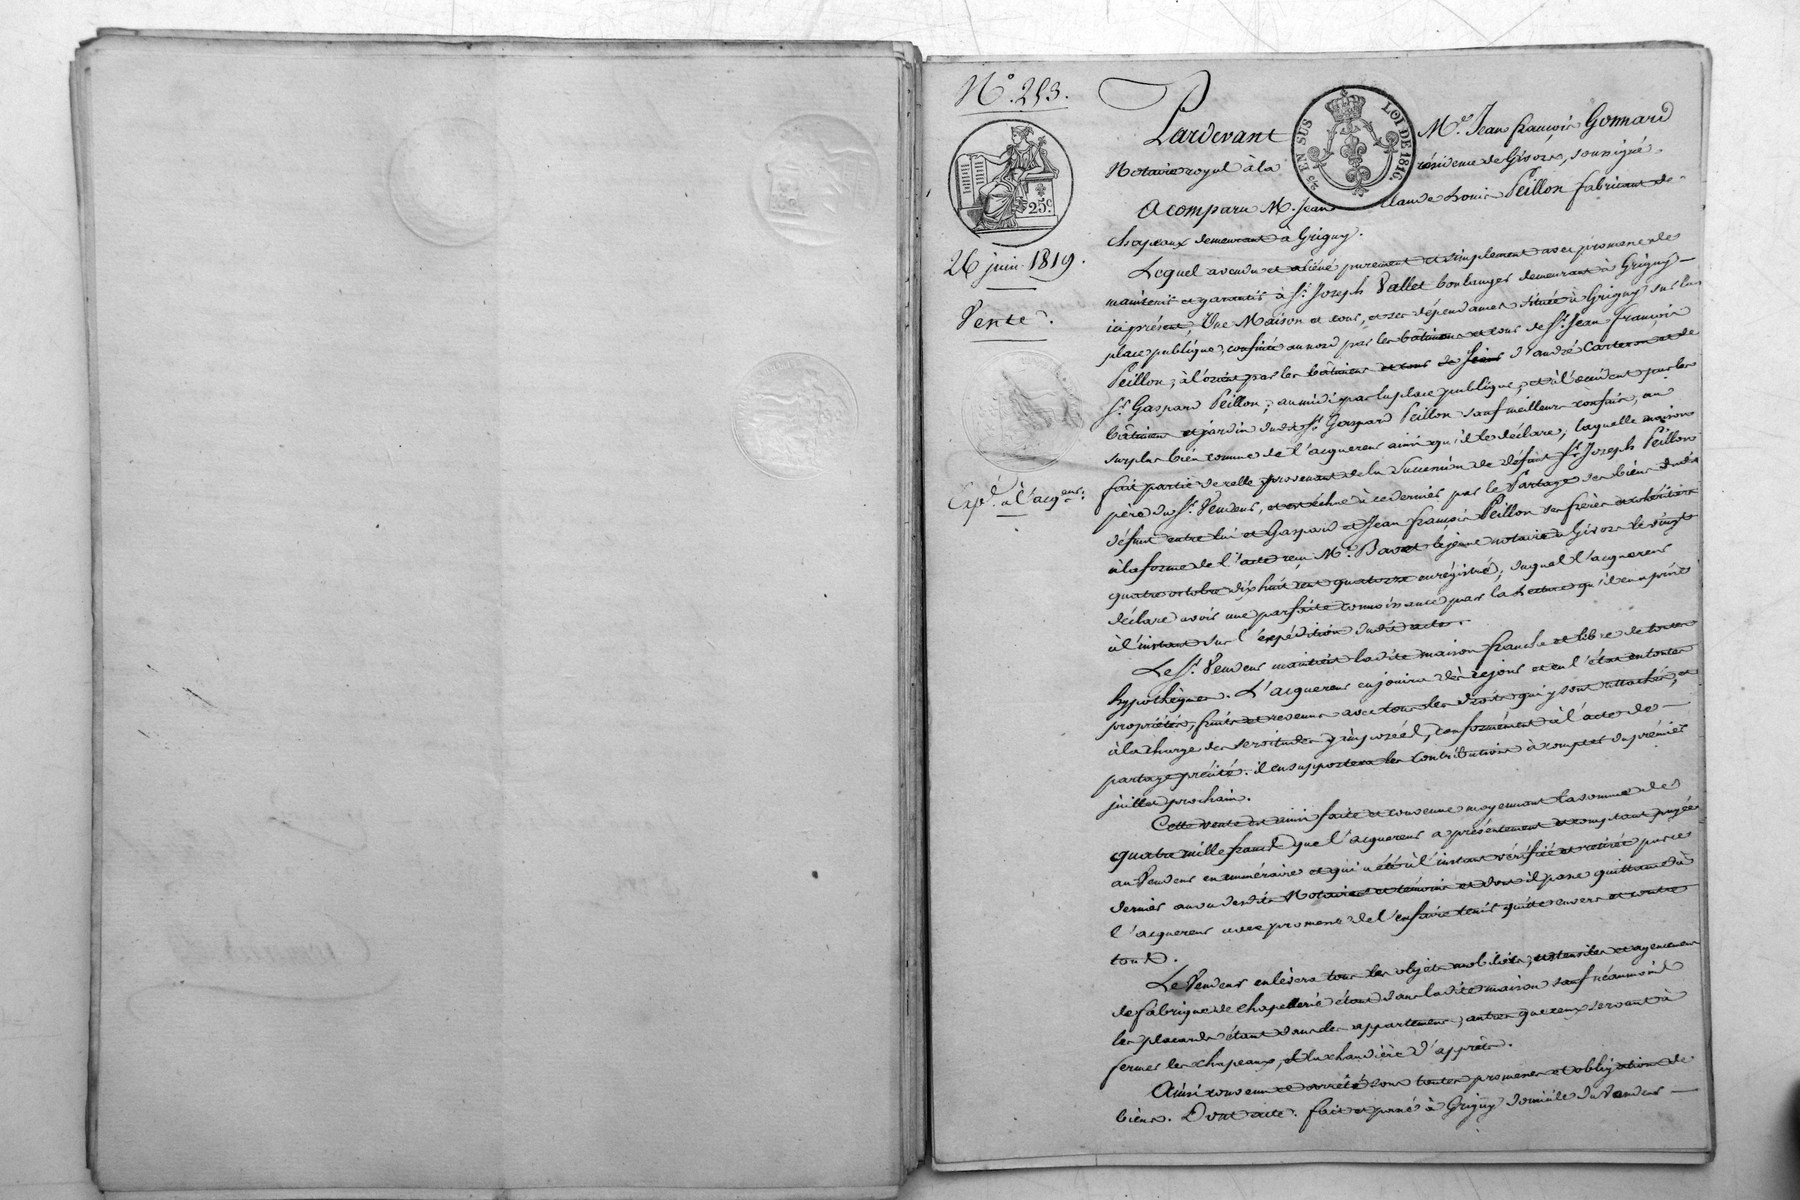 N.° 253.
25c
26 juin 1819.
Vente.
Exp.é à l'acq.eur.
25 EN SUS
LOI DE 1816.
Pardevant M.e Jean françois Gonnard
Notaire royal à la résidence de Givors, soussigné.
A comparu M. Jean Claude Louis Peillon fabricant de
chapeaux demeurant à Grigny.
Lequel a vendu et aliéné purement et simplement avec promesse de
maintenir et garantir à S.r Joseph Vallet boulanger demeurant à Grigny
ici présent, Une Maison et cour, et ses dépendances située à Grigny sur la
place publique, confinée au nord par les bâtimens et cour de S.r Jean françois
Peillon; à l'orient par les bâtimens et cour de d'andré Carteron et de
S.r Gaspard Peillon; au midi par la place publique, et à l'occident par les
bâtimens et jardin dudit S.r Gaspard Peillon sauf meilleurs confins, au
surplus bien connue de l'acquereur ainsi qu'il le déclare, laquelle maison
fait partie de celle provenant de la succession de défunt S.r Joseph Peillon
père du S.r Vendeur, et est échue à ce dernier par le Partage des biens dudit
défunt entre lui et Gaspard et Jean françois Peillon ses frères cohéritiers
à la forme de l'acte reçu M.e Bavet lejeune notaire à Givors le vingt
quatre octobre dix huit cent quatorze enregistré, duquel l'acquereur
déclare avoir une parfaite connoissance par la Lecture qu'il en a prise
à l'instant sur l'expédition dudit acte.
Le S.r Vendeur maintient ladite maison franche et libre de toutes
hypothèques. L'acquereur en jouira dès ce jour et en l'état en toutes
propriétés, fruits et revenus avec tous les droits qui y sont attachés, et
à la charge des servitudes y imposées, conformément à l'acte de
partage précité. il en supportera les contributions à compter du premier
juillet prochain.
Cette vente est ainsi faite et convenue moyennant la somme de
quatre mille francs que l'acquereur a présentement et comptant payée
au Vendeur en numéraire et qui a été à l'instant vérifiée et retirée par ce
dernier au vu desdits Notaires et témoins et dont il passe quittance à
l'acquereur avec promesse de l'en faire tenir quitte envers et contre
tous.
Le Vendeur enlèvera tous les objets mobiliers, ustensiles et agencemens
de fabrique de chapellerie étant dans ladite maison sauf néanmoins
les placards étant dans les appartemens, autres que ceux servant à
fermer les chapeaux, et la chaudière d'apprêts.
Ainsi convenu et arrêté sous toutes promesses et obligations de
biens. Dont acte. fait et passé à Grigny domicile du Vendeur